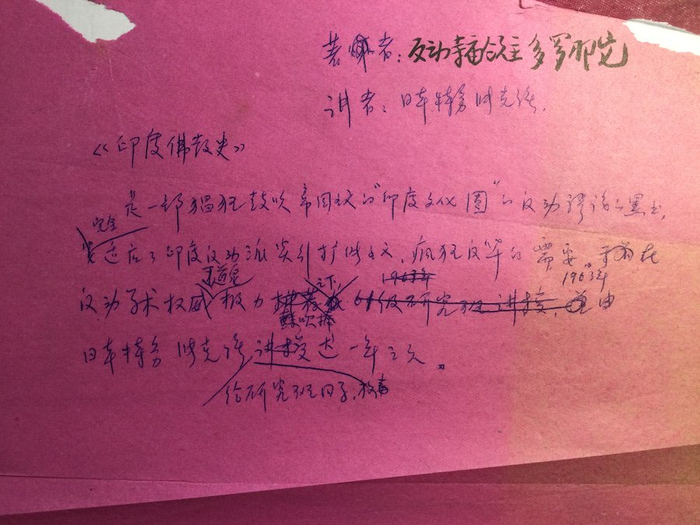 著者：反动寺庙领主多罗那它
讲者：日本特务
《印度佛教史》
是一部猖狂鼓吹帝国主义"印度文化圈"的反动谬论之黑书，
完全
适应了印度反动派实行扩张主义、疯狂反华的需要。于
1963年 1963年
反动学术权威 极力 之下，研究班讲授，由
鼓吹
日本特务 讲授达一年之久。
给研究班同学